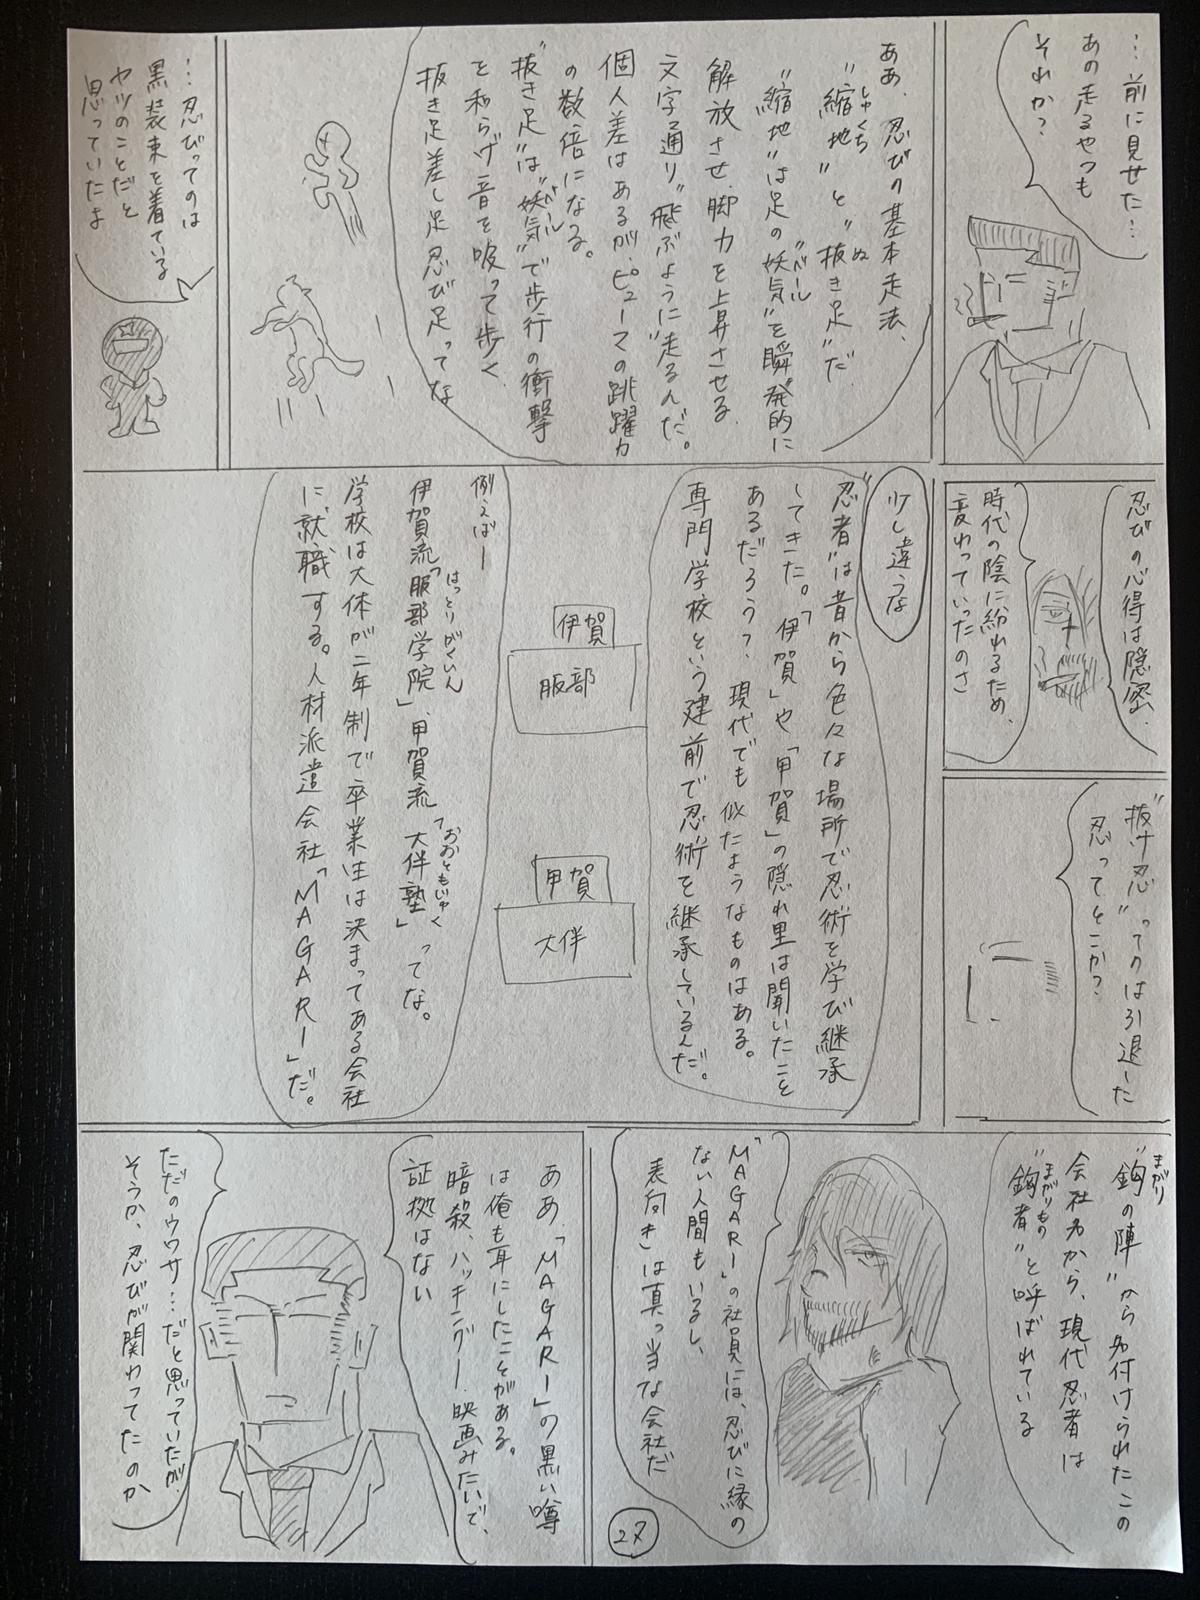 …前に見せた…
あの走るやつも
それか?
ああ、忍びの基本走法、
“縮地”と“抜き足”だ
しゅくち
ぬ
“縮地”は足の“妖気”を瞬発的に
ベール
解放させ、脚力を上昇させる
文字通り“飛ぶように”走るんだ。
個人差はあるが、ピューマの跳躍力
の数倍になる。
“抜き足”は“妖気”で歩行の衝撃
ベール
を和らげ音を吸って歩く
抜き足差し足忍び足ってな
…忍びってのは
黒装束を着ている
ヤツのことだと
思っていたよ
忍びの心得は隠密、
時代の陰に紛れるため、
変わっていったのさ
“抜け忍”ってのは引退した
忍ってとこか?
少し違うな
“忍者”は昔から色々な場所で忍術を学び継承
してきた。「伊賀」や「甲賀」の隠れ里は聞いたこと
あるだろう?現代でも似たようなものはある。
専門学校という建前で忍術を継承しているんだ。
伊賀
服部
甲賀
大伴
例えばー
伊賀流「服部学院」、甲賀流「大伴塾」ってな。
はっとりがくいん
おおともじゅく
学校は大体が二年制で卒業生は決まってある会社
に就職する。人材派遣会社「MAGARI」だ。
“鈎の陣”から名付けられたこの
まがり
会社名から、現代忍者は
“鈎者”と呼ばれている
まがりもの
「MAGARI」の社員には、忍びに縁の
ない人間もいるし、
表向きは真っ当な会社だ
27
ああ、「MAGARI」の黒い噂
は俺も耳にしたことがある。
暗殺、ハッキングー、映画みたいで、
証拠はない
ただのウワサ…だと思っていたが、
そうか、忍びが関わってたのか